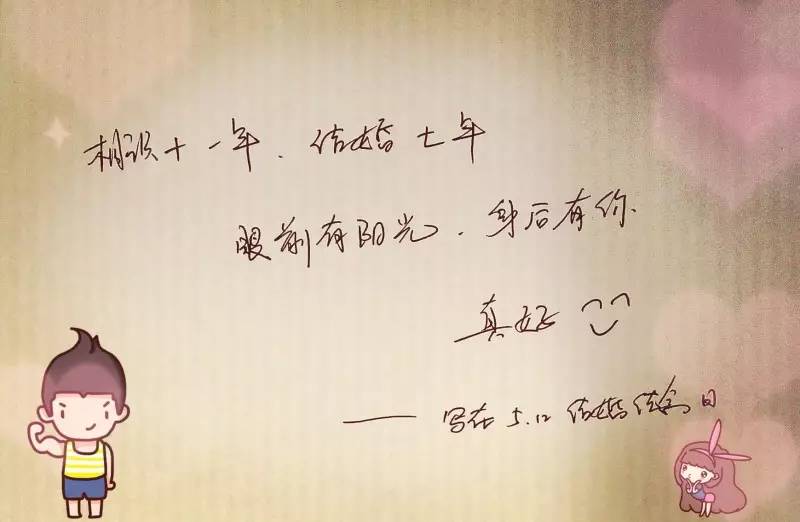 相识十一年、结婚七年
眼前有阳光、身后有你.
真好
——写在 5.12 结婚纪念日